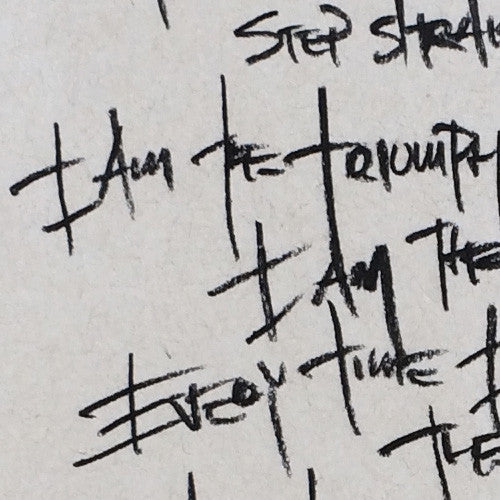 STEP STRAI
I AM THE TRIUMPH
I AM THE
EVERY TIME I
THE